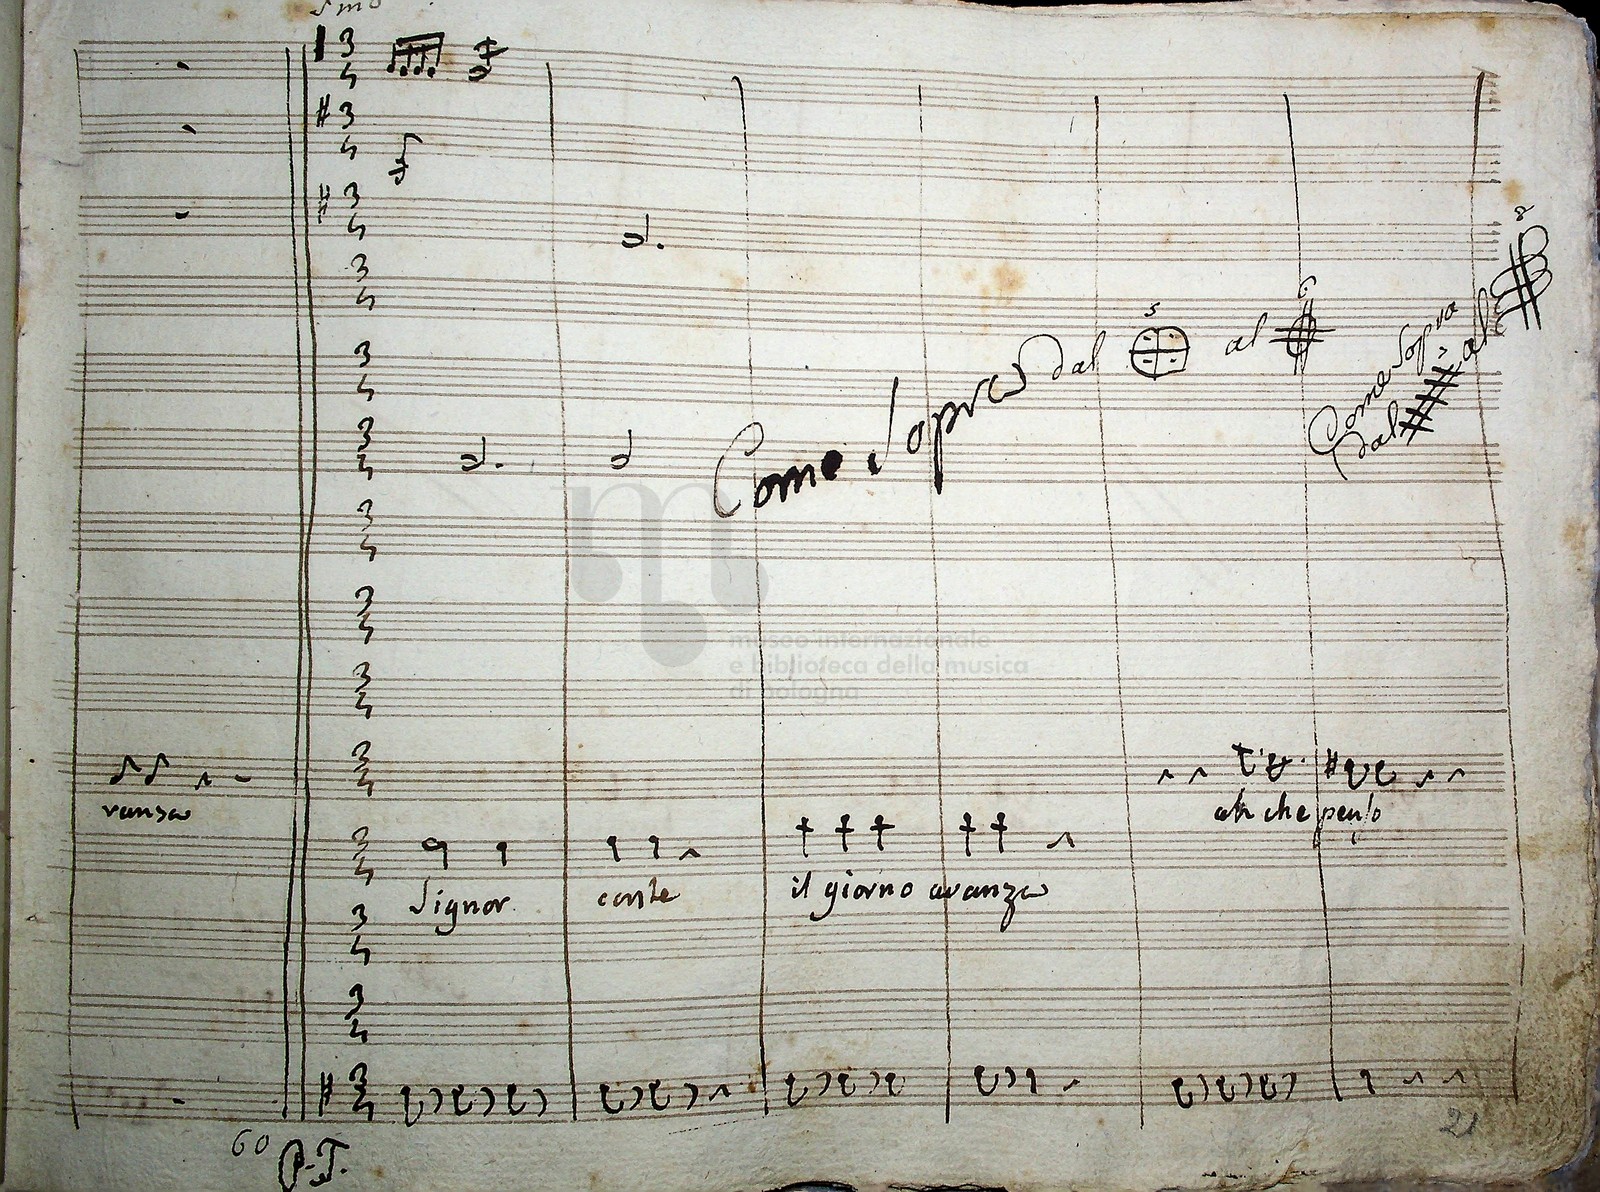 Pmo
Come Sopra dal 5 al 6
Come Sopra
dal 7 al 8
museo internazionale
e biblioteca della musica
di bologna
vanza
ah che penso
Signor conte il giorno avanza
60 P.T.
21